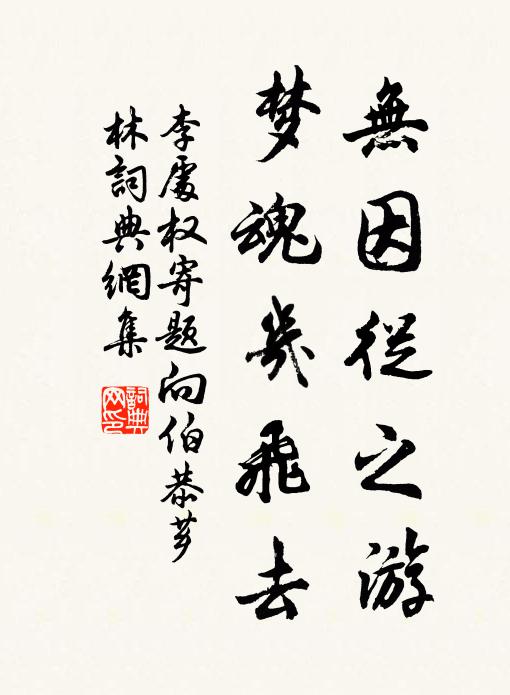 無因從之游
梦魂幾飛去
李處权寄题向伯恭芗
林詞典網集
詞典
网印